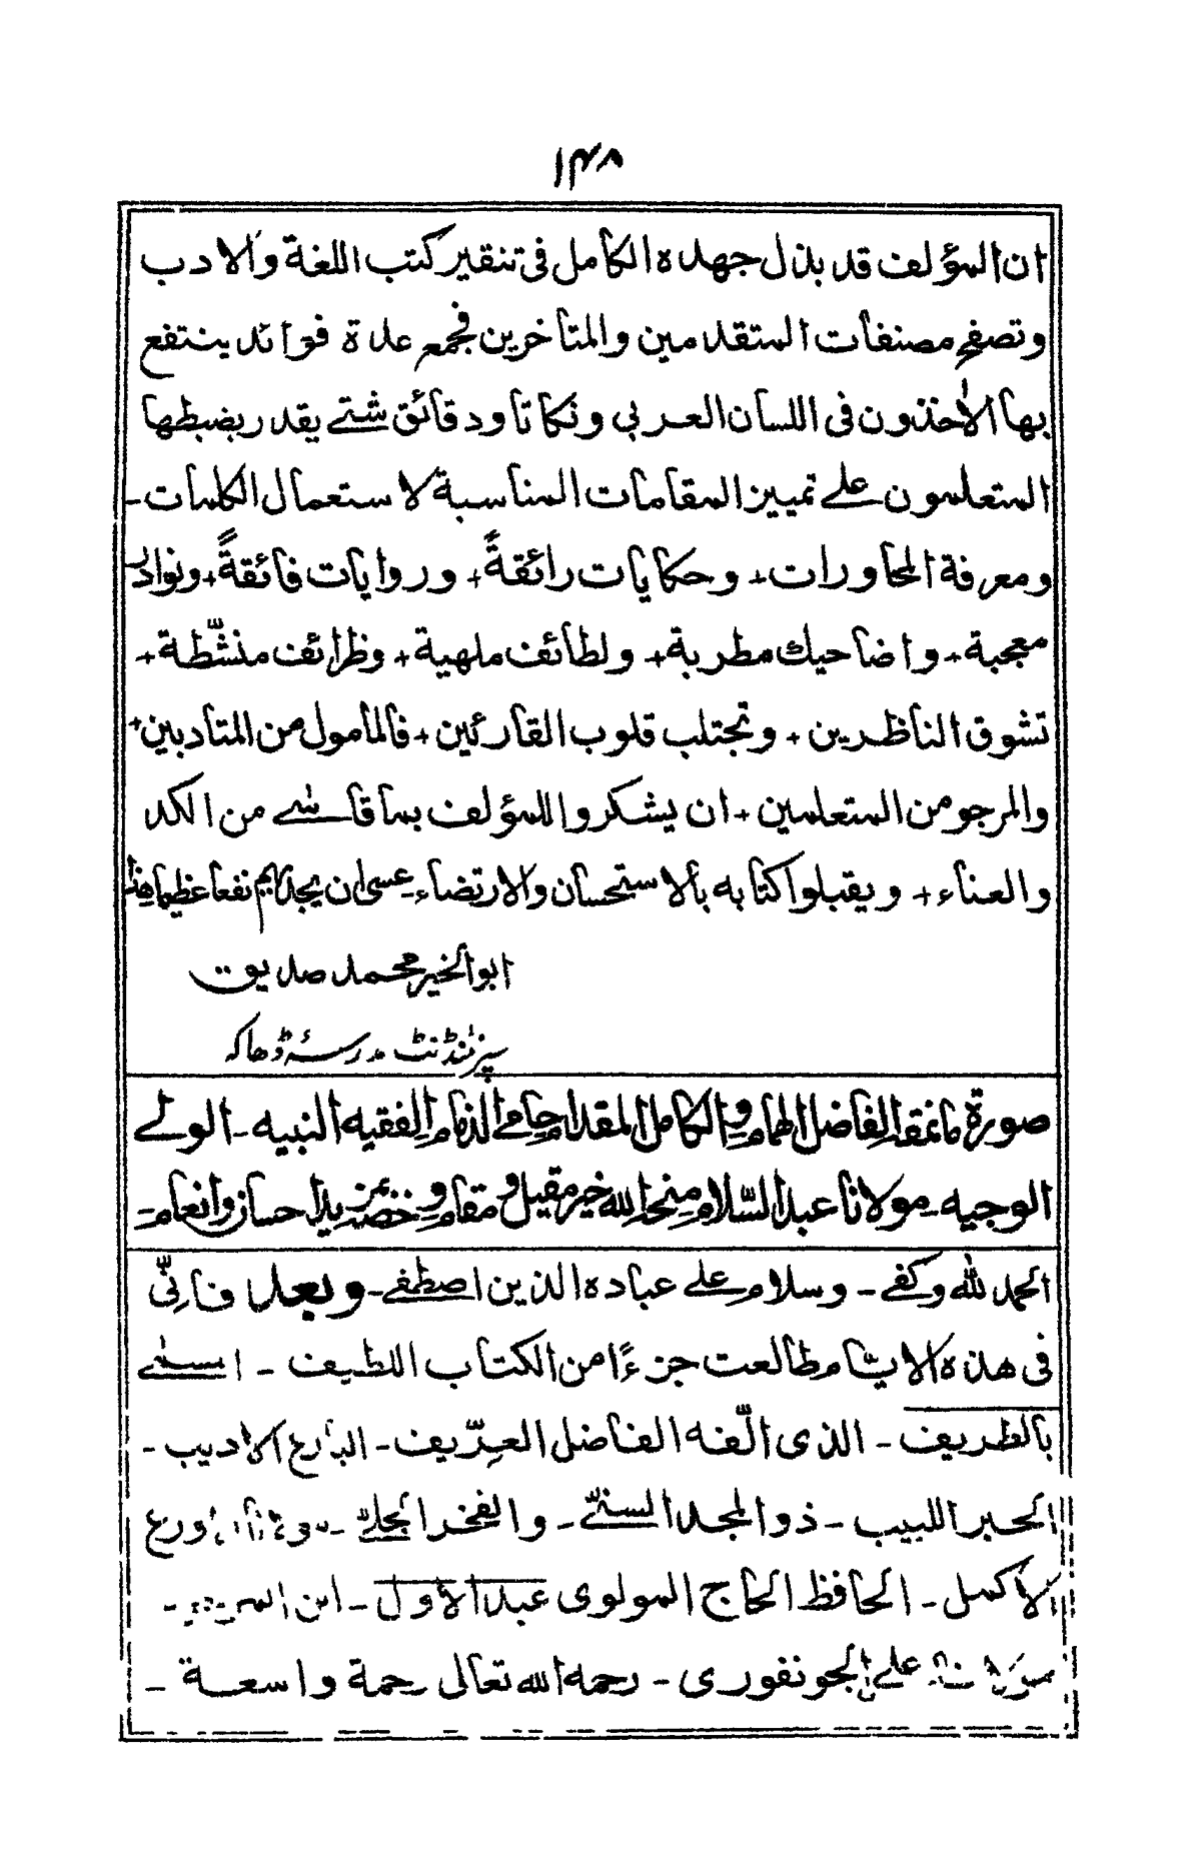 ١٣٨
ان المؤلف قد بذل جهده الكامل فى تنقير كتب اللغة والادب
وتصفح مصنفات المتقدمين والمتأخرين فجمع عدة فوائد ينتفع
بها الأخذون فى اللسان العربي ونكاتا ودقائق شتے يقدر بضبطها
المتعلمون علے تمييز المقامات المناسبة لاستعمال الكلمات -
ومعرفة المحاورات + وحكايات رائقةً + وروايات فائقةً + ونوادر
معجبة + واضاحيك مطربة + ولطائف ملهية + وظرائف منشّطة +
تشوق الناظرين + وتجتلب قلوب القارئين + فالمأمول من المتأدبين +
والمرجو من المتعلمين + ان يشكروا للمؤلف بما قاسے من الكد
والعناء + ويقبلوا كتابه بالاستحسان والارتضاء - عسى ان يجديهم نفعا عظيما هذا
ابو الخير محمد صديق
سپرنٹنڈنٹ مدرسۂ ڈھاکہ
صورة ما نمقه الفاضل الهمام والكامل المقدام حامي الذمام الفقيه النبيه - الولے
الوجيه - مولانا عبد السّلام منحه الله خير مقيل ومقام وخصه بمزيد احسان وانعام -
الحمد لله وكفے - وسلام علے عباده الذين اصطفے - وبعد فانّى
فى هذه الايام طالعت جزءًا من الكتاب اللطيف - المسمّے
بالطريف - الذى الّفه الفاضل العرّيف - البارع الاديب -
الحبر اللبيب - ذو المجد السنّے - والفخر الجلّے - الاورع
الاكمل - الحافظ الحاج المولوى عبد الأول - ابن
علے الجونفورى - رحمه الله تعالى رحمة واسعة -